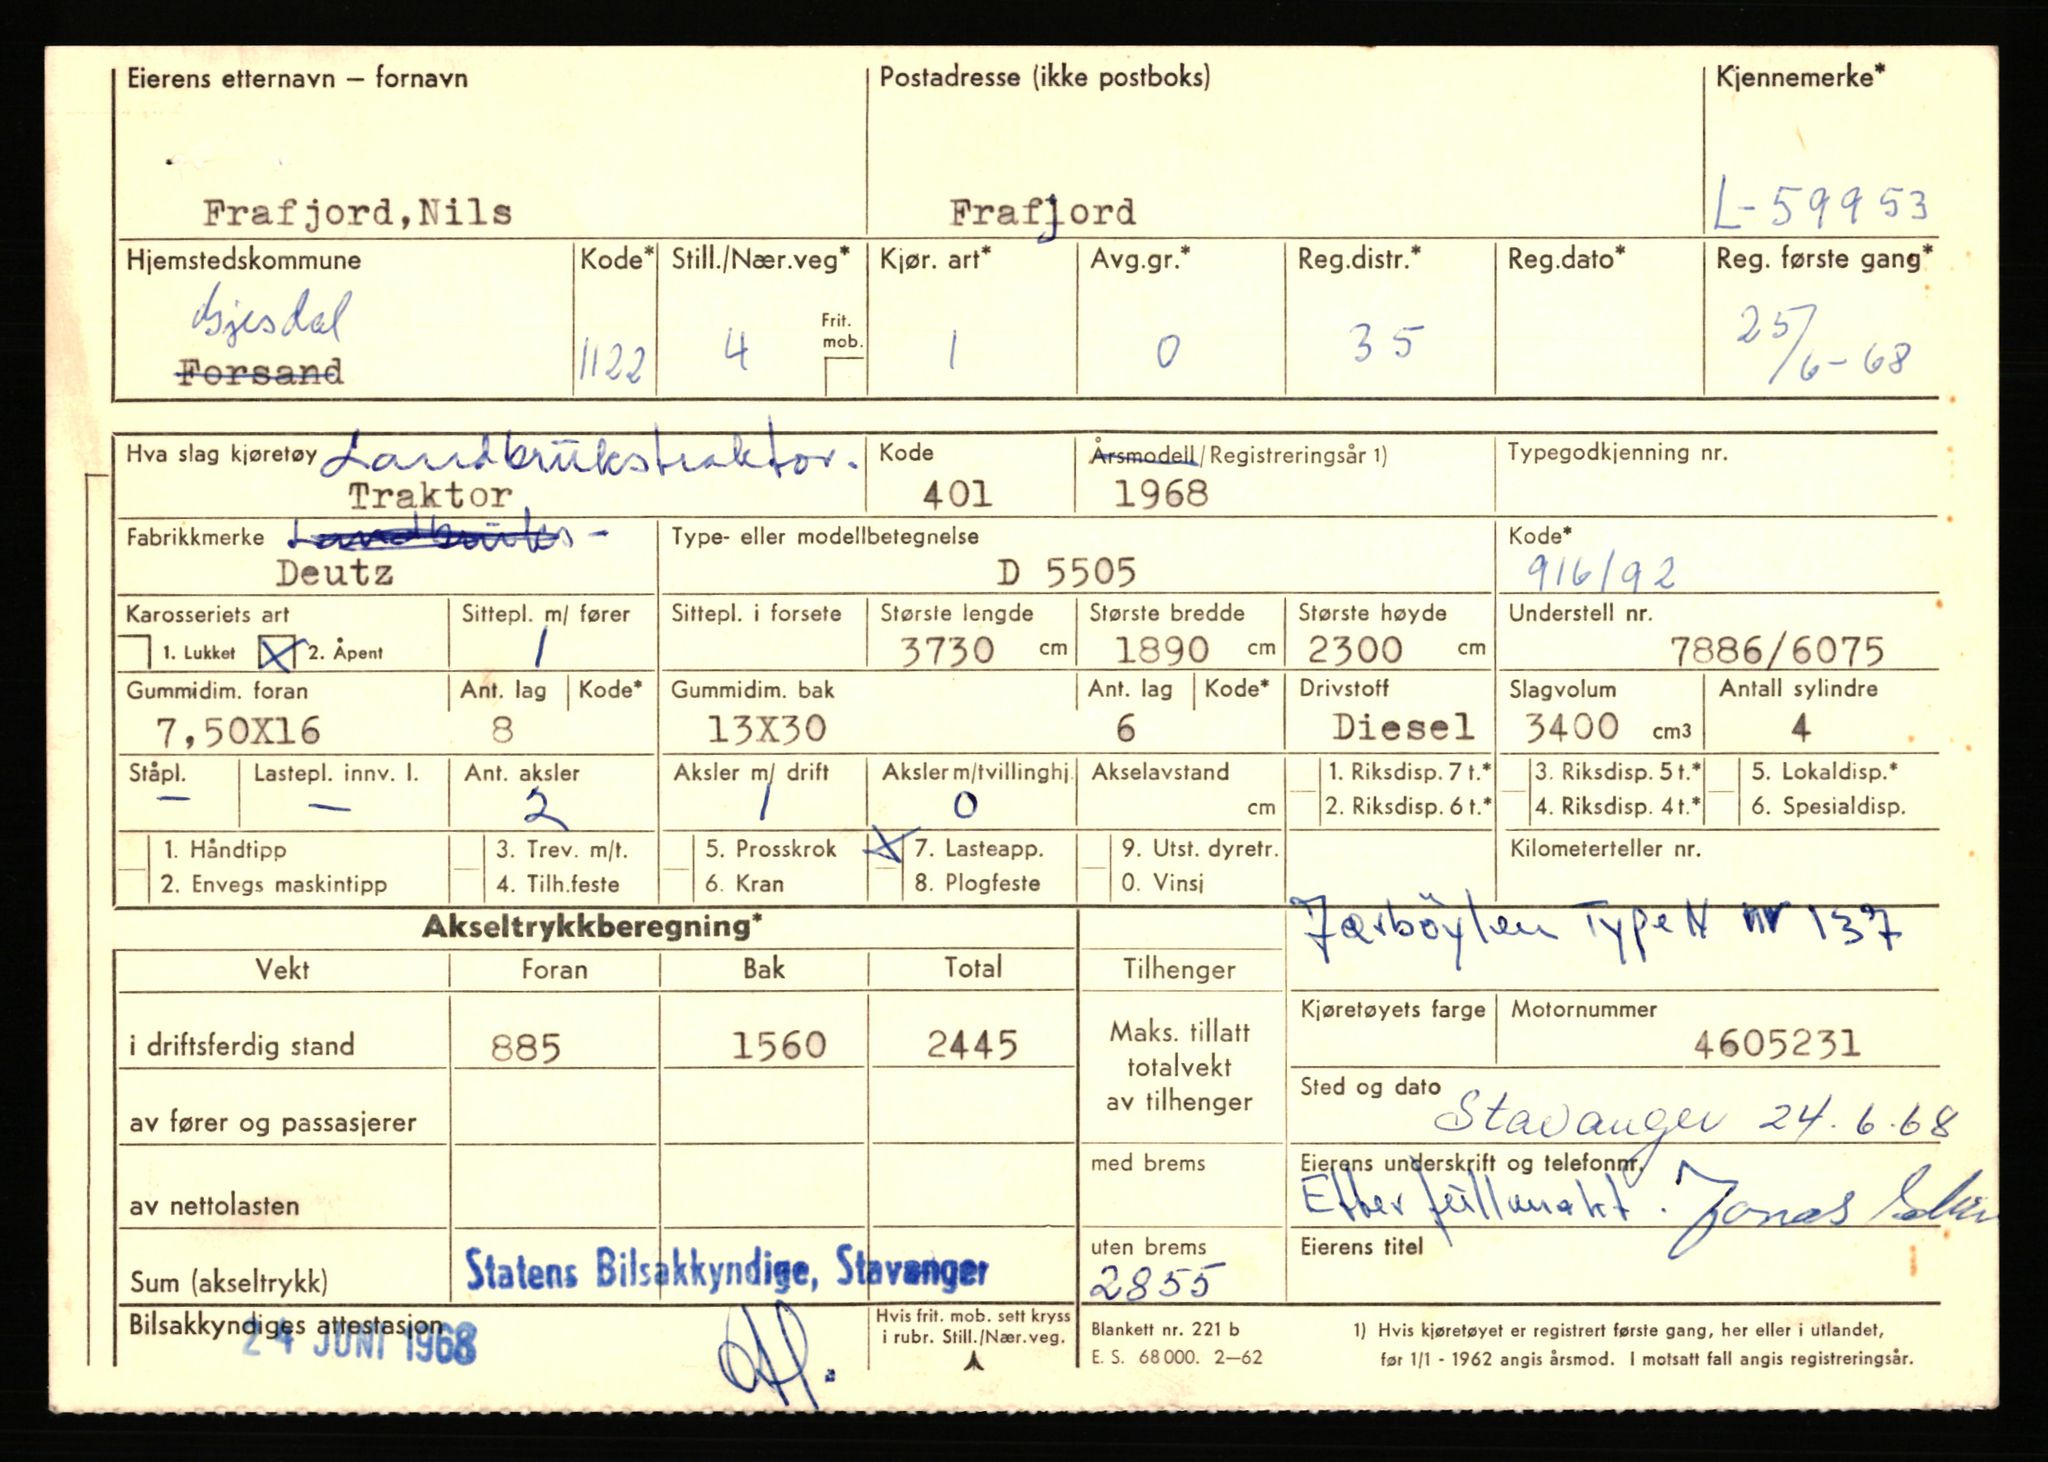 Eierens etternavn – fornavn Postadresse (ikke postboks) Kjennemerke*
Frafjord,Nils Frafjord L-59953
Hjemstedskommune Kode* Still./Nær.veg* Kjør. art* Avg.gr.* Reg.distr.* Reg.dato* Reg. første gang*
Gjesdal
Forsand 1122 4 Frit. mob. 1 0 35 25/6-68
Hva slag kjøretøy Landbrukstraktor. Kode Årsmodell/Registreringsår 1) Typegodkjenning nr.
Traktor 401 1968
Fabrikkmerke Landbruks- Type- eller modellbetegnelse Kode*
Deutz D 5505 916/92
Karosseriets art Sittepl. m/ fører Sittepl. i forsete Største lengde Største bredde Største høyde Understell nr.
1. Lukket 2. Åpent 1 3730 cm 1890 cm 2300 cm 7886/6075
Gummidim. foran Ant. lag Kode* Gummidim. bak Ant. lag Kode* Drivstoff Slagvolum Antall sylindre
7,50X16 8 13X30 6 Diesel 3400 cm3 4
Ståpl. Lastepl. innv. l. Ant. aksler Aksler m/ drift Aksler m/tvillinghj. Akselavstand 1. Riksdisp. 7 t.* 3. Riksdisp. 5 t.* 5. Lokaldisp.*
– – 2 1 0 cm 2. Riksdisp. 6 t.* 4. Riksdisp. 4 t.* 6. Spesialdisp.
1. Håndtipp 3. Trev. m/t. 5. Prosskrok 7. Lasteapp. 9. Utst. dyretr. Kilometerteller nr.
2. Envegs maskintipp 4. Tilh.feste 6. Kran 8. Plogfeste 0. Vinsj
Akseltrykkberegning* Jærbøylen Type N nr 137
Vekt Foran Bak Total Tilhenger
Kjøretøyets farge Motornummer
i driftsferdig stand 885 1560 2445 Maks. tillatt totalvekt av tilhenger 4605231
Sted og dato
av fører og passasjerer Stavanger 24.6.68
med brems Eierens underskrift og telefonnr.
av nettolasten Etter fullmakt. Jonas
uten brems Eierens titel
Sum (akseltrykk) Statens Bilsakkyndige, Stavanger 2855
Bilsakkyndiges attestasjon Hvis frit. mob. sett kryss i rubr. Still./Nær.veg. Blankett nr. 221 b 1) Hvis kjøretøyet er registrert første gang, her eller i utlandet,
24 JUNI 1968 E. S. 68 000. 2–62 før 1/1 - 1962 angis årsmod. I motsatt fall angis registreringsår.